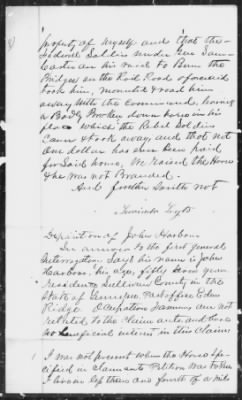 property of myself and that the
Federal Soldiers under Gen Saun-
Carter on his raid to Burn the
Bridges on the Rail Road aforesaid
took him, mounted & rode him
away with the Command, leaving
a Badly Broken down horse in his
place which the Rebel Soldiers
Came & took away, and that not
one dollar has ever been paid
for said horse, We raised the Horse
& he was not Branded.
And further saith not
Deposition of John Harbour
In answer to the first general
Interrogatory Says his name is John
Harbour, his age, fifty seven years
Residence Sullivan County in the
State of Tennessee, Post office Eden
Ridge. Occupation Farmer and not
related to the Claimants, and has
no beneficial interest in this Claim
1 I was not present when the Horse Spe-
cified in Claimants Petition was taken
I live less than one fourth of a mile